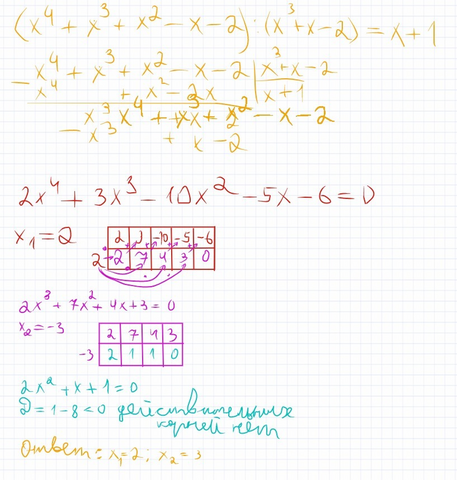 (x⁴ + x³ + x² - x - 2) : (x³ + x - 2) = x + 1
- x⁴ + x³ + x² - x - 2 | x³ + x - 2
x⁴ + x² - 2x | x + 1
x³ + x - 2
- x³ + x - 2
2x⁴ + 3x³ - 10x² - 5x - 6 = 0
x₁ = 2
2 3 -10 -5 -6
2 2 7 4 3 0
2x³ + 7x² + 4x + 3 = 0
x₂ = -3
2 7 4 3
-3 2 1 1 0
2x² + x + 1 = 0
D = 1 - 8 < 0 действительных
корней нет
Ответ: x₁ = 2; x₂ = 3